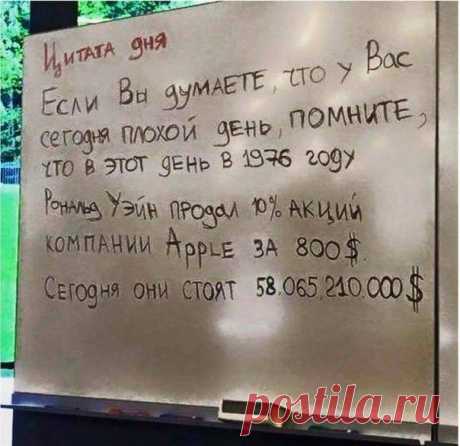 Цитата дня
Если Вы думаете, что у Вас
сегодня плохой день, помните,
что в этот день в 1976 году
Рональд Уэйн продал 10% акций
компании Apple за 800$.
Сегодня они стоят 58.065.210.000$
postila.ru